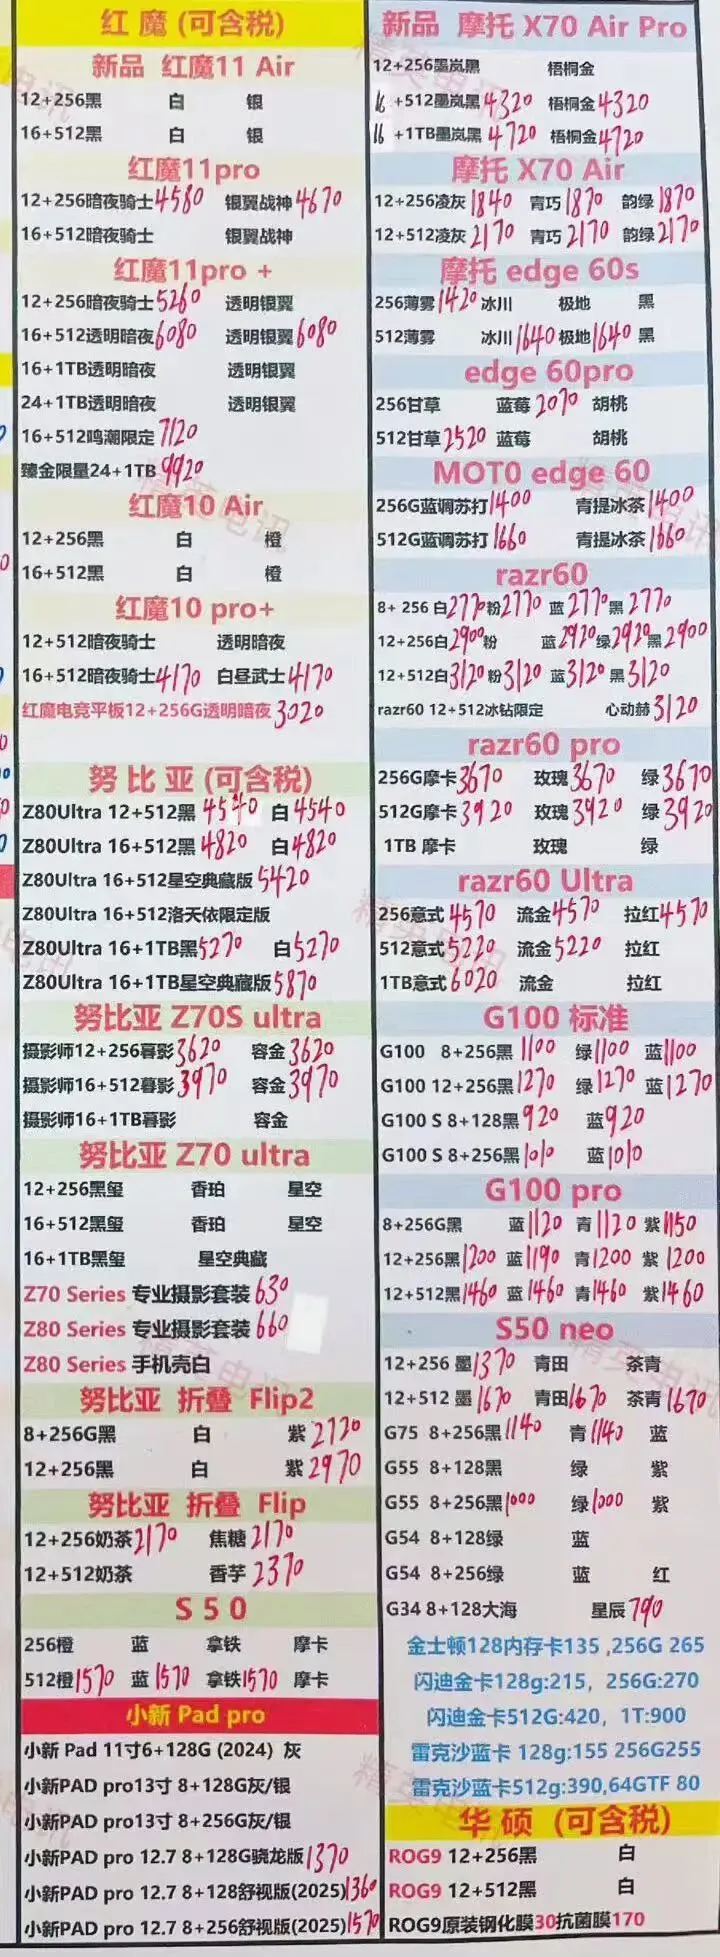 红 魔 (可含税)
新品 红魔11 Air
12+256黑 白 银
16+512黑 白 银
红魔11pro
12+256暗夜骑士4580 银翼战神4670
16+512暗夜骑士 银翼战神
红魔11pro +
12+256暗夜骑士5260 透明银翼
16+512透明暗夜6080 透明银翼6080
16+1TB透明暗夜 透明银翼
24+1TB透明暗夜 透明银翼
16+512鸣潮限定 7120
臻金限量24+1TB 9920
红魔10 Air
12+256黑 白 橙
16+512黑 白 橙
红魔10 pro+
12+512暗夜骑士 透明暗夜
16+512暗夜骑士4170 白昼武士4170
红魔电竞平板12+256G透明暗夜 3020
努 比 亚 (可含税)
Z80Ultra 12+512黑 4540 白 4540
Z80Ultra 16+512黑 4820 白4820
Z80Ultra 16+512星空典藏版5420
Z80Ultra 16+512洛天依限定版
Z80Ultra 16+1TB黑5270 白5270
Z80Ultra 16+1TB星空典藏版5870
努比亚 Z70S ultra
摄影师12+256暮影3620 容金3620
摄影师16+512暮影3970 容金3970
摄影师16+1TB暮影 容金
努比亚 Z70 ultra
12+256黑玺 香珀 星空
16+512黑玺 香珀 星空
16+1TB黑玺 星空典藏
Z70 Series 专业摄影套装630
Z80 Series 专业摄影套装660
Z80 Series 手机壳白
努比亚 折叠 Flip2
8+256G黑 白 紫2720
12+256黑 白 紫2970
努比亚 折叠 Flip
12+256奶茶2170 焦糖2170
12+512奶茶 香芋2370
S 5 0
256橙 蓝 拿铁 摩卡
512橙1570 蓝1570 拿铁1570 摩卡
小新 Pad pro
小新 Pad 11寸6+128G (2024) 灰
小新PAD pro13寸 8+128G灰/银
小新PAD pro13寸 8+256G灰/银
小新PAD pro 12.7 8+128G骁龙版1370
小新PAD pro 12.7 8+128舒视版(2025)1360
小新PAD pro 12.7 8+256舒视版(2025)1570
新品 摩托 X70 Air Pro
12+256墨岚黑 梧桐金
16 +512墨岚黑4320 梧桐金4320
16 +1TB墨岚黑4720 梧桐金4720
摩托 X70 Air
12+256凌灰1840 青巧1870 韵绿1870
12+512凌灰2170 青巧2170 韵绿2170
摩托 edge 60s
256薄雾1420 冰川 极地 黑
512薄雾 冰川1640 极地1640 黑
edge 60pro
256甘草 蓝莓2070 胡桃
512甘草2520 蓝莓 胡桃
MOTO edge 60
256G蓝调苏打1400 青提冰茶1400
512G蓝调苏打1660 青提冰茶1660
razr60
8+ 256 白2770粉2770 蓝2770黑2770
12+256白2900粉 蓝2920绿2920黑2900
12+512白3120粉3120 蓝3120黑3120
razr60 12+512冰钻限定 心动赫3120
razr60 pro
256G摩卡3670 玫瑰3670 绿3670
512G摩卡3920 玫瑰3920 绿3920
1TB 摩卡 玫瑰 绿
razr60 Ultra
256意式4570 流金4570 拉红4570
512意式5220 流金5220 拉红
1TB意式6020 流金 拉红
G100 标准
G100 8+256黑 1100 绿1100 蓝1100
G100 12+256黑1270 绿1270 蓝1270
G100 S 8+128黑920 蓝920
G100 S 8+256黑1010 蓝1010
G100 pro
8+256G黑 蓝1120 青1120 紫1150
12+256黑1200 蓝1190 青1200 紫1200
12+512黑1460 蓝1460 青1460 紫1460
S50 neo
12+256 墨1370 青田 茶青
12+512 墨1670 青田1670 茶青1670
G75 8+256黑1140 青1140 蓝
G55 8+128黑 绿 紫
G55 8+256黑1000 绿1000 紫
G54 8+128绿 蓝
G54 8+256绿 蓝 红
G34 8+128大海 星辰790
金士顿128内存卡135 ,256G 265
闪迪金卡128g:215, 256G:270
闪迪金卡512G:420, 1T:900
雷克沙蓝卡 128g:155 256G255
雷克沙蓝卡512g:390,64GTF 80
华 硕 (可含税)
ROG9 12+256黑 白
ROG9 12+512黑 白
ROG9原装钢化膜30抗菌膜170